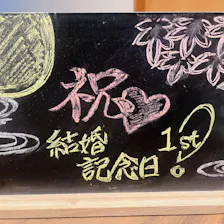 祝
結婚 1st
記念日!